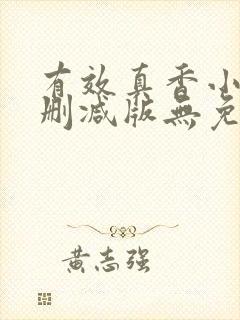 有效真香小
删减版無免
黄志强